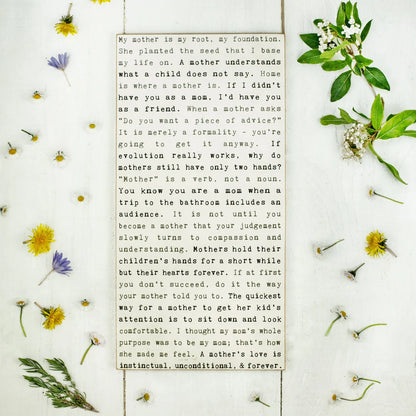 My mother is my root, my foundation.
She planted the seed that I base
my life on. A mother understands
what a child does not say. Home
is where a mother is. If I didn't
have you as a mom, I'd have you
as a friend. When a mother asks
"Do you want a piece of advice?"
It is merely a formality - you're
going to get it anyway. If
evolution really works, why do
mothers still have only two hands?
"Mother" is a verb, not a noun.
You know you are a mom when a
trip to the bathroom includes an
audience. It is not until you
become a mother that your judgement
slowly turns to compassion and
understanding. Mothers hold their
children's hands for a short while
but their hearts forever. If at first
you don't succeed, do it the way
your mother told you to. The quickest
way for a mother to get her kid's
attention is to sit down and look
comfortable. I thought my mom's whole
purpose was to be my mom; that's how
she made me feel. A mother's love is
instinctual, unconditional, & forever.